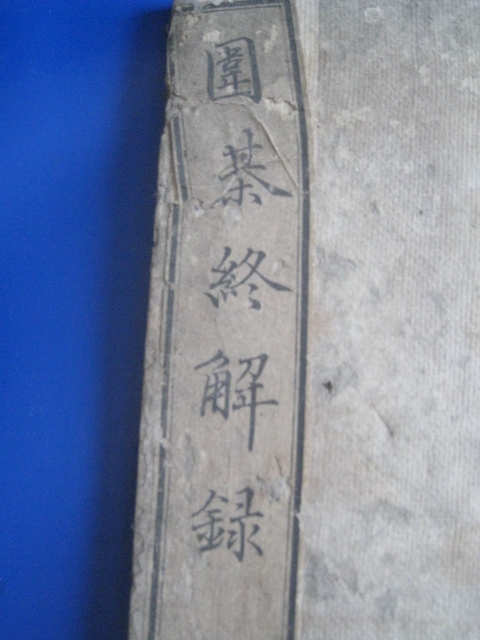 圍棊終解録